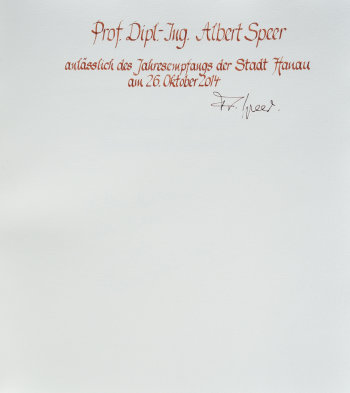 Prof. Dipl.-Ing. Albert Speer
anlässlich des Jahresempfangs der Stadt Hanau
am 26. Oktober 2014
Speer.